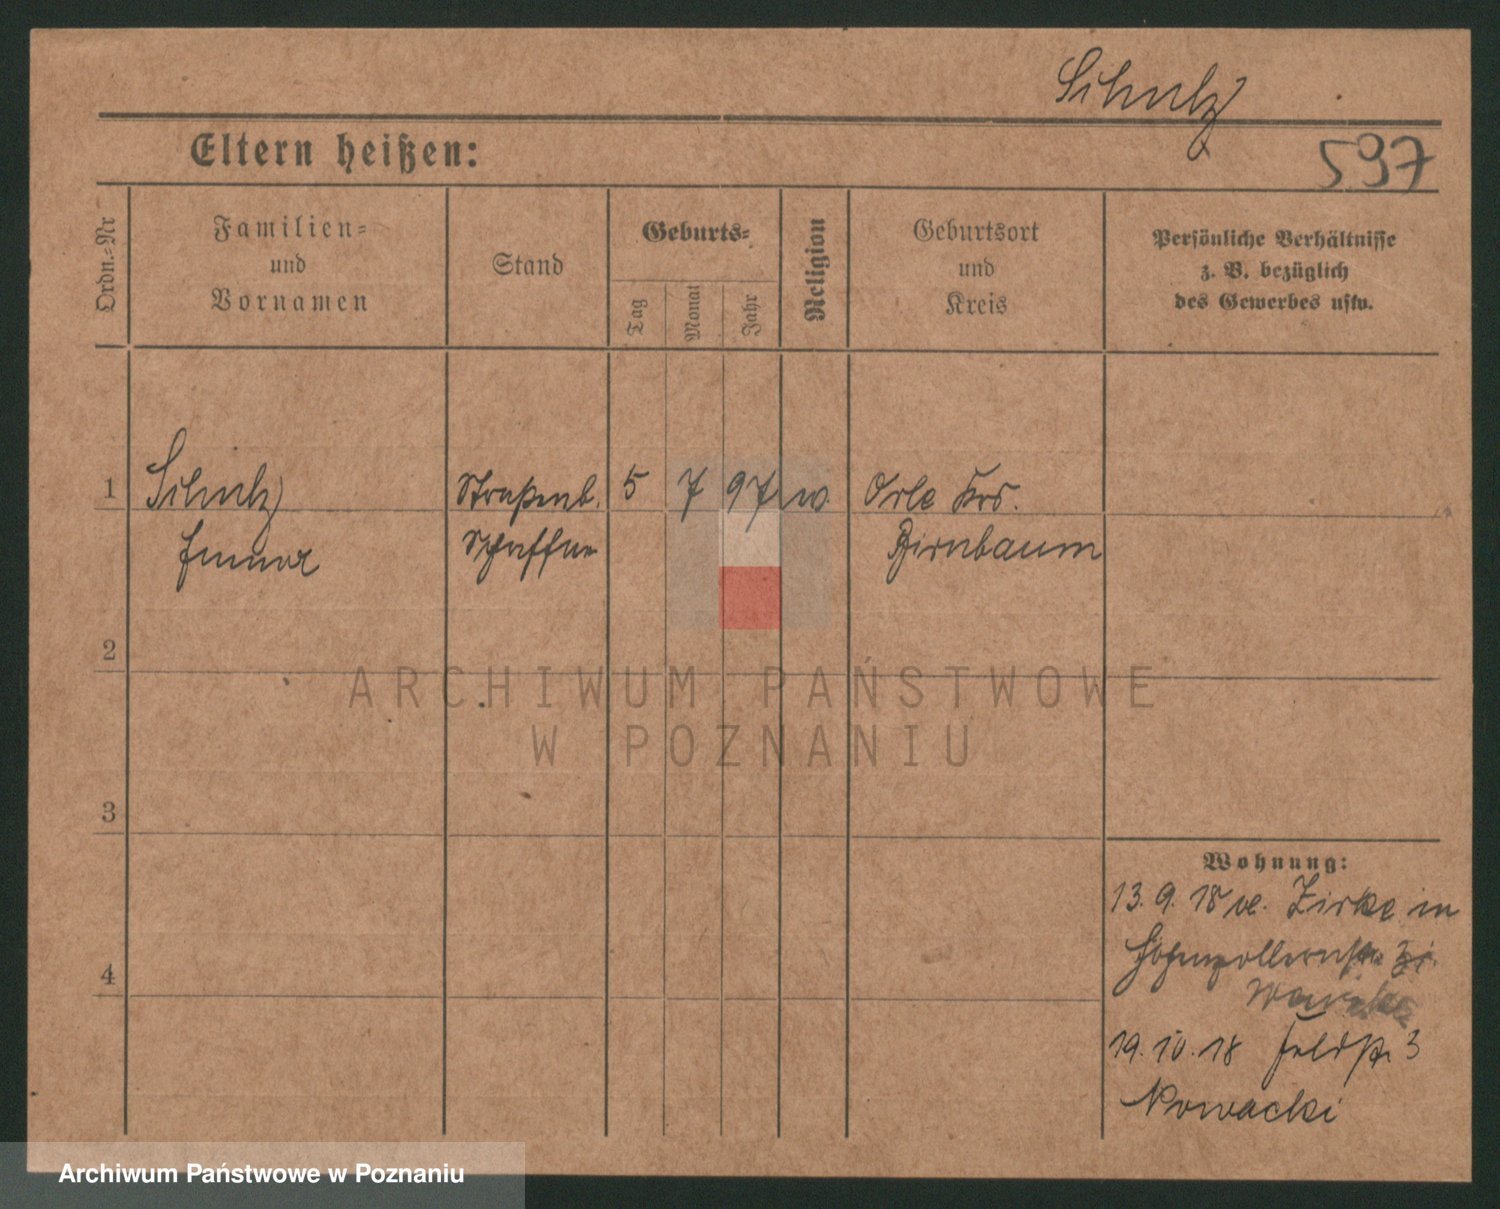 Schulz
597
Eltern heißen:
Ordn.=Nr
Familien=
und
Vornamen
Stand
Geburts=
Tag
Monat
Jahr
Religion
Geburtsort
und
Kreis
Persönliche Verhältnisse
z. B. bezüglich
des Gewerbes usw.
1 Schulz Straßenb. 5 7 97 w. Orle Krs.
Emma Schaffn Birnbaum
2
3
4
Wohnung:
13. 9. 18 v. Zirke in
Hohenzollernstr.
19. 10. 18 Feldstr. 3
Nowacki
ARCHIWUM PAŃSTWOWE
W POZNANIU
Archiwum Państwowe w Poznaniu